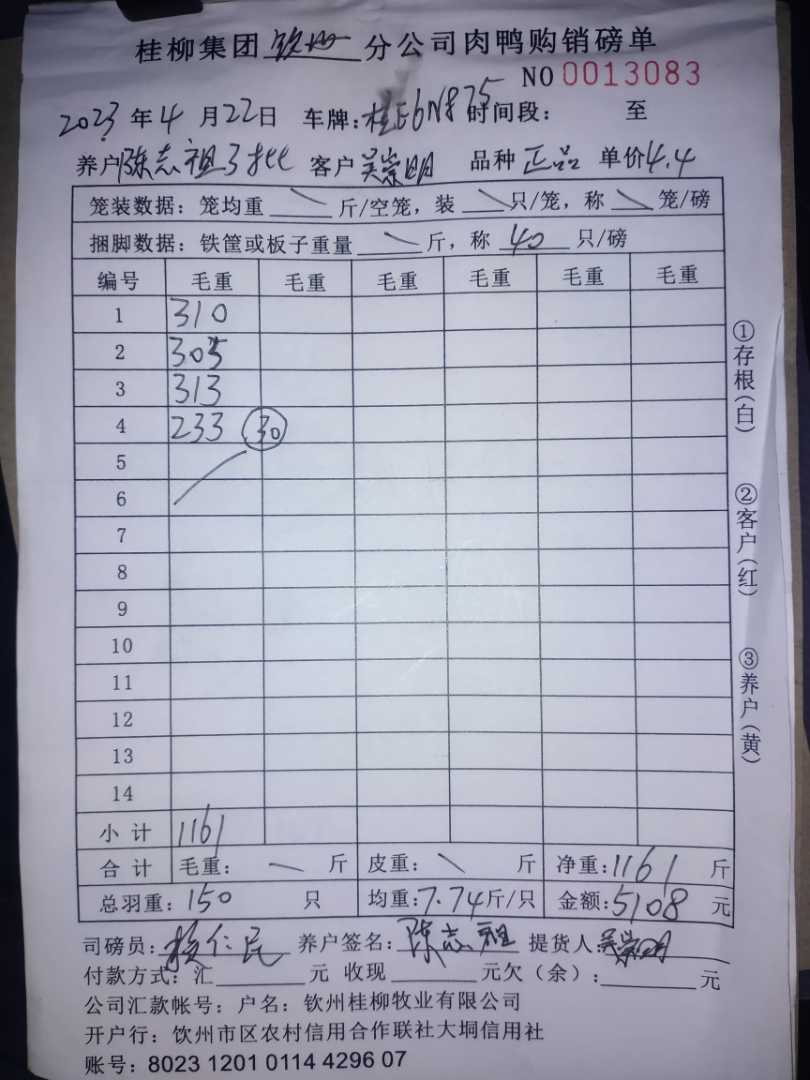 桂柳集团 钦州 分公司肉鸭购销磅单
NO 0013083
2023 年 4 月 22 日 车牌: 桂E6N875 时间段: 至
养户 陈志祖3批 客户 吴崇明 品种 正品 单价 4.4
笼装数据: 笼均重 \ 斤/空笼, 装 \ 只/笼, 称 \ 笼/磅
捆脚数据: 铁筐或板子重量 \ 斤, 称 40 只/磅
编号 毛重 毛重 毛重 毛重 毛重 毛重
1 310
2 305
3 313
4 233 30
5
6
7
8
9
10
11
12
13
14
小计 1161
合计 毛重: — 斤 皮重: \ 斤 净重: 1161 斤
总羽重: 150 只 均重: 7.74 斤/只 金额: 5108 元
司磅员: 仁民 养户签名: 陈志祖 提货人: 吴崇明
付款方式: 汇 元 收现 元欠(余): 元
公司汇款帐号: 户名: 钦州桂柳牧业有限公司
开户行: 钦州市区农村信用合作联社大垌信用社
账号: 8023 1201 0114 4296 07
①存根(白)
②客户(红)
③养户(黄)